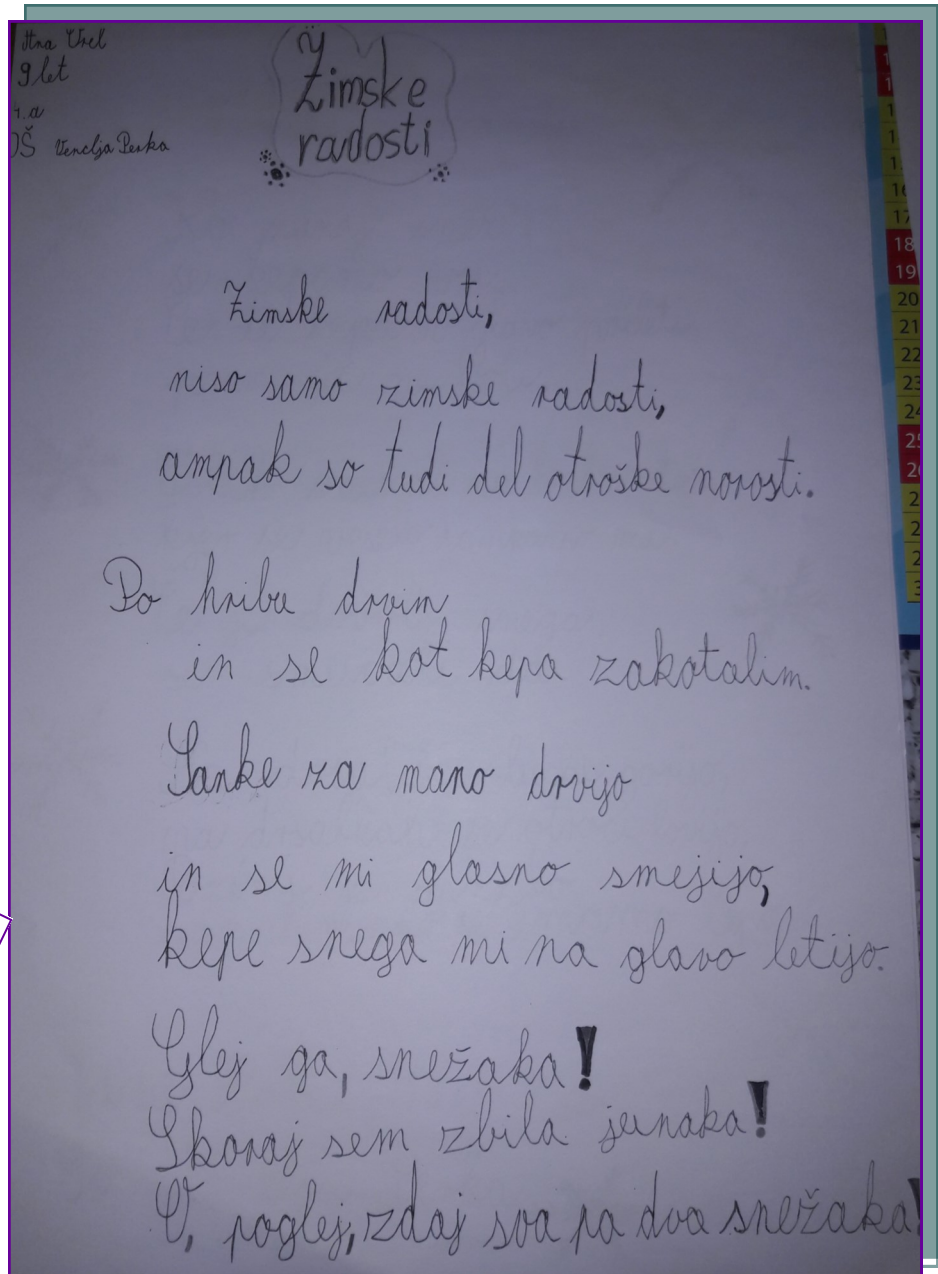 Ana Urek
9 let
4.a
OŠ Venclja Perka
Zimske
radosti
Zimske radosti,
niso samo zimske radosti,
ampak so tudi del otroške norosti.
Po hribu drvim
in se kot kepa zakotalim.
Sanke za mano drvijo
in se mi glasno smejijo,
kepe snega mi na glavo letijo.
Glej ga, snežaka!
Skoraj sem zbila junaka!
O, poglej, zdaj sva pa dva snežaka!
18
19
20
21
22
23
24
25
26